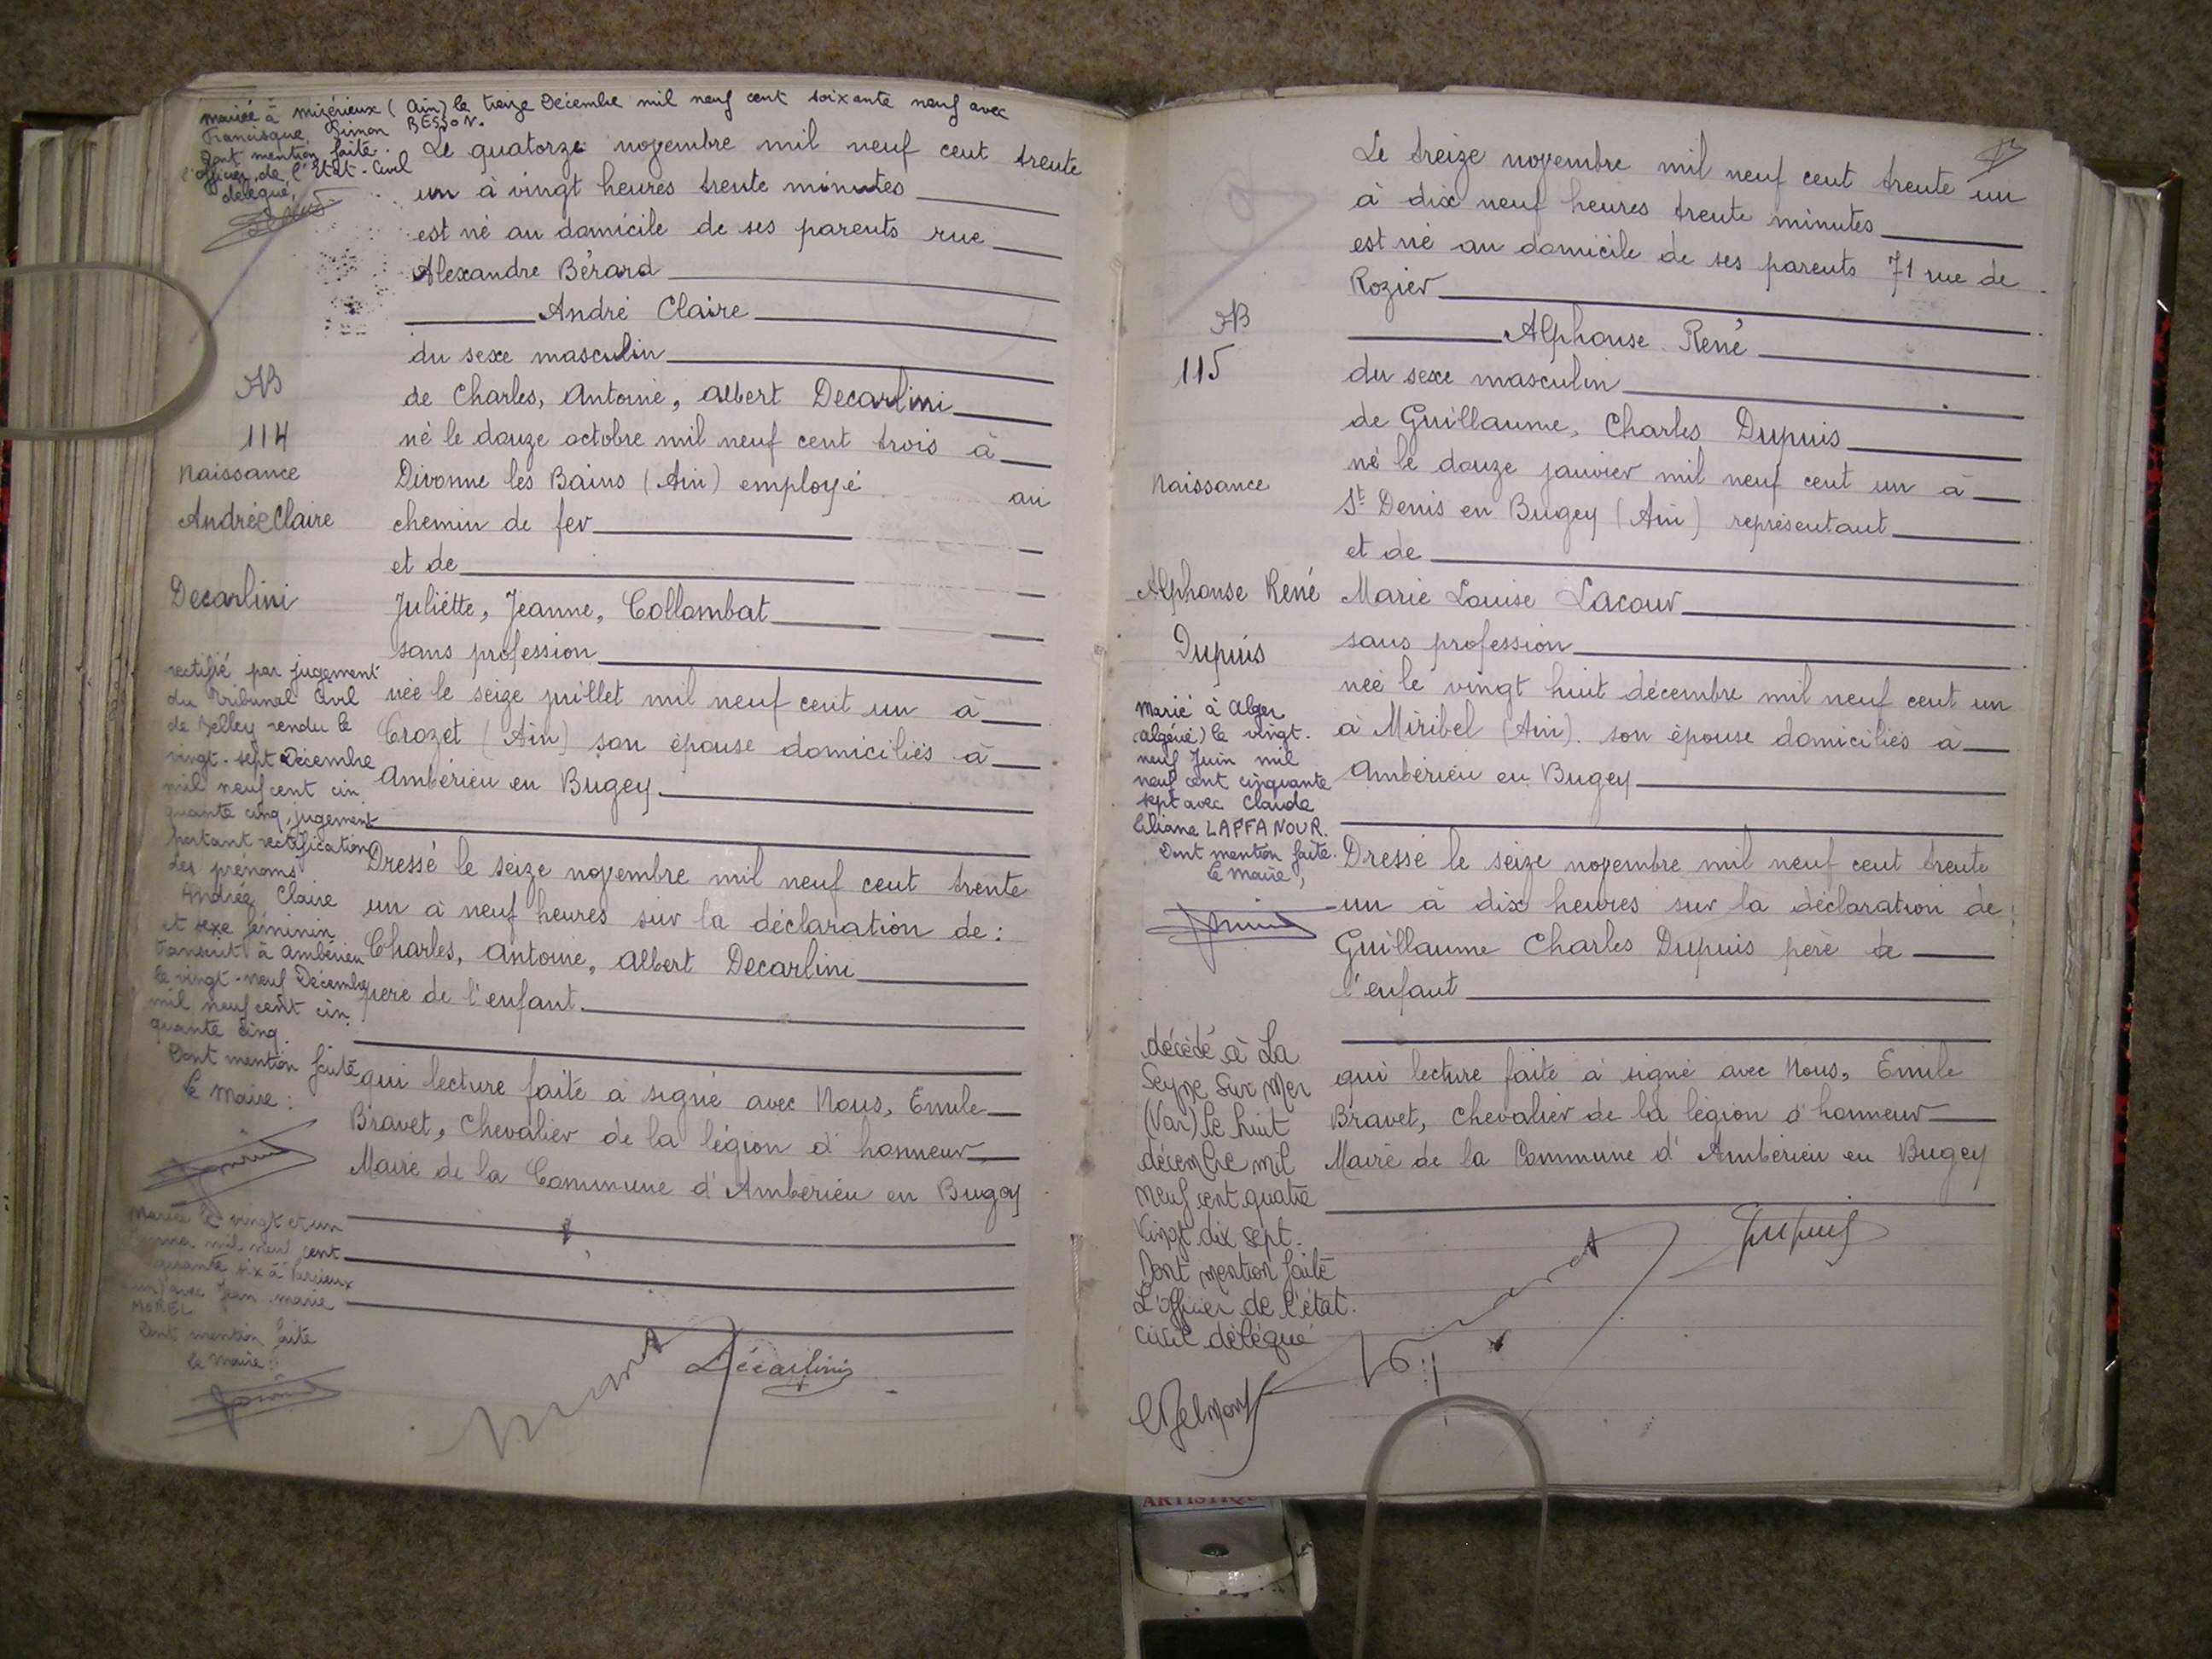 mariée à mizérieux (Ain) le treize Décembre mil neuf cent soixante neuf avec
Francisque Simon BESSON.
Dont mention faite.
l'officier de l'Etat-Civil
délégué,
Le quatorze novembre mil neuf cent trente
un à vingt heures trente minutes
est né au domicile de ses parents rue
Alexandre Bérard
André Claire
du sexe masculin
de Charles, Antoine, Albert Decarlini
né le douze octobre mil neuf cent trois à
Divonne les Bains (Ain) employé au
chemin de fer
et de
Juliette, Jeanne, Collombat
sans profession
née le seize juillet mil neuf cent un à
Crozet (Ain) son épouse domiciliés à
Ambérieu en Bugey
Dressé le seize novembre mil neuf cent trente
un à neuf heures sur la déclaration de :
Charles, Antoine, Albert Decarlini
père de l'enfant.
qui lecture faite a signé avec Nous, Emile
Bravet, Chevalier de la légion d'honneur,
Maire de la Commune d'Ambérieu en Bugey
Decarlini
114
Naissance
Andrée Claire
Decarlini
rectifié par jugement
du Tribunal Civil
de Belley rendu le
vingt-sept Décembre
mil neuf cent cin
quante cinq, jugement
portant rectification
des prénoms
Andrée Claire
et sexe féminin
transcrit à Ambérieu
le vingt-neuf Décembre
mil neuf cent cin
quante cinq.
Dont mention faite
Le Maire :
Mariée le vingt et un
mil neuf cent
quante six à
avec Jean Marie
MOREL
Dont mention faite
Le Maire :
Le treize novembre mil neuf cent trente un
à dix neuf heures trente minutes
est né au domicile de ses parents 71 rue de
Rozier
Alphonse René
du sexe masculin
de Guillaume, Charles Dupuis
né le douze janvier mil neuf cent un à
St Denis en Bugey (Ain) représentant
et de
Marie Louise Lacour
sans profession
née le vingt huit décembre mil neuf cent un
à Miribel (Ain). son épouse domiciliés à
Ambérieu en Bugey
Dressé le seize novembre mil neuf cent trente
un à dix heures sur la déclaration de
Guillaume Charles Dupuis père de
l'enfant
qui lecture faite a signé avec Nous, Emile
Bravet, Chevalier de la légion d'honneur
Maire de la Commune d'Ambérieu en Bugey
Dupuis
115
Naissance
Alphonse René
Dupuis
Marié à Alger
(Algérie) le vingt-
neuf Juin mil
neuf cent cinquante
sept avec Claude
Liliane LAFFANOUR.
Dont mention faite.
Le Maire,
décédé à La
Seyne sur Mer
(Var) le huit
décembre mil
neuf cent quatre
vingt dix sept.
Dont mention faite
L'Officier de l'état.
civil délégué
ARTISTIQUE